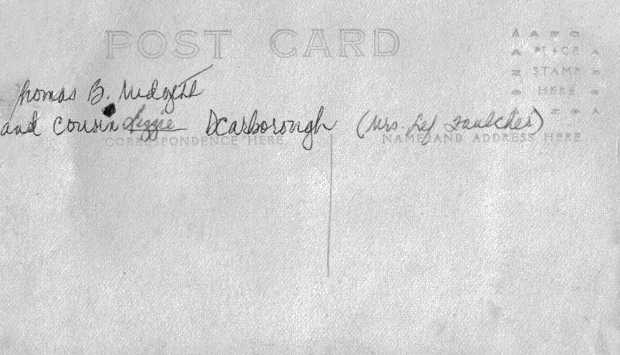 POST CARD
PLACE
STAMP
HERE
Thomas B. Midgett
and cousin Lizzie Scarborough (Mrs. Lef Faulcher)
CORRESPONDENCE HERE
NAME AND ADDRESS HERE